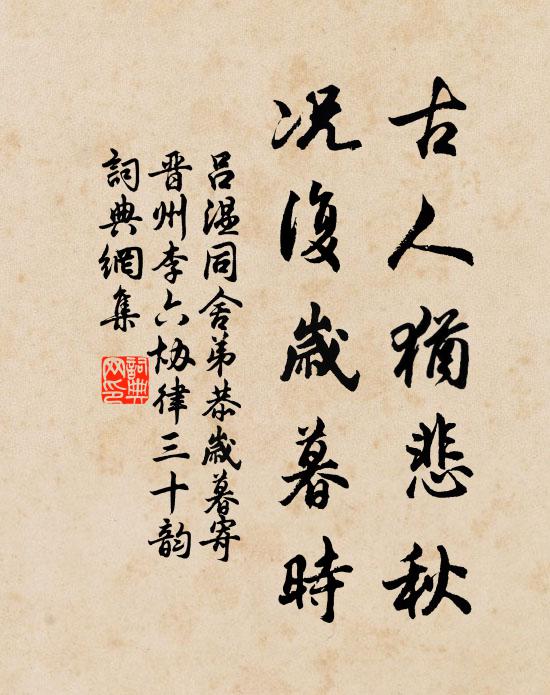 古人猶悲秋
况復歲暮時
呂溫同舍弟恭歲暮寄
晋州李六协律三十韵
詞典網集
詞典
网印